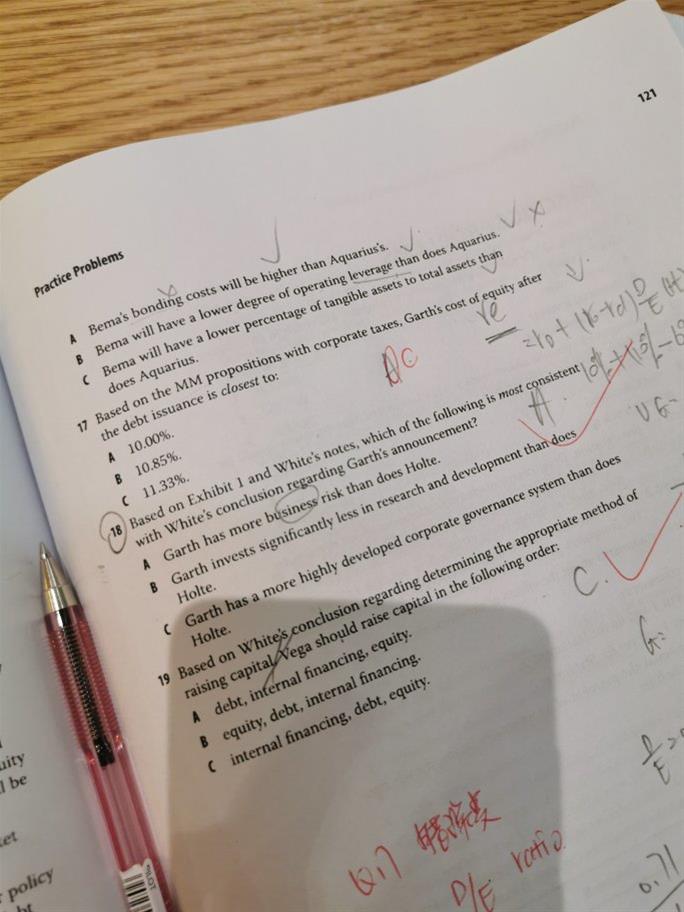 121
Practice Problems
A Bema's bonding costs will be higher than Aquarius's.
B Bema will have a lower degree of operating leverage than does Aquarius.
C Bema will have a lower percentage of tangible assets to total assets than
does Aquarius.
17 Based on the MM propositions with corporate taxes, Garth's cost of equity after
the debt issuance is closest to:
A 10.00%.
B 10.85%.
C 11.33%.
re
AC
18 Based on Exhibit 1 and White's notes, which of the following is most consistent
with White's conclusion regarding Garth's announcement?
A.
A Garth has more business risk than does Holte.
B Garth invests significantly less in research and development than does
Holte.
C Garth has a more highly developed corporate governance system than does
Holte.
C.
19 Based on White's conclusion regarding determining the appropriate method of
raising capital, Vega should raise capital in the following order:
A debt, internal financing, equity.
B equity, debt, internal financing.
C internal financing, debt, equity.
Q17
D/E ratio
0.71
uity
l be
ket
r policy
bt